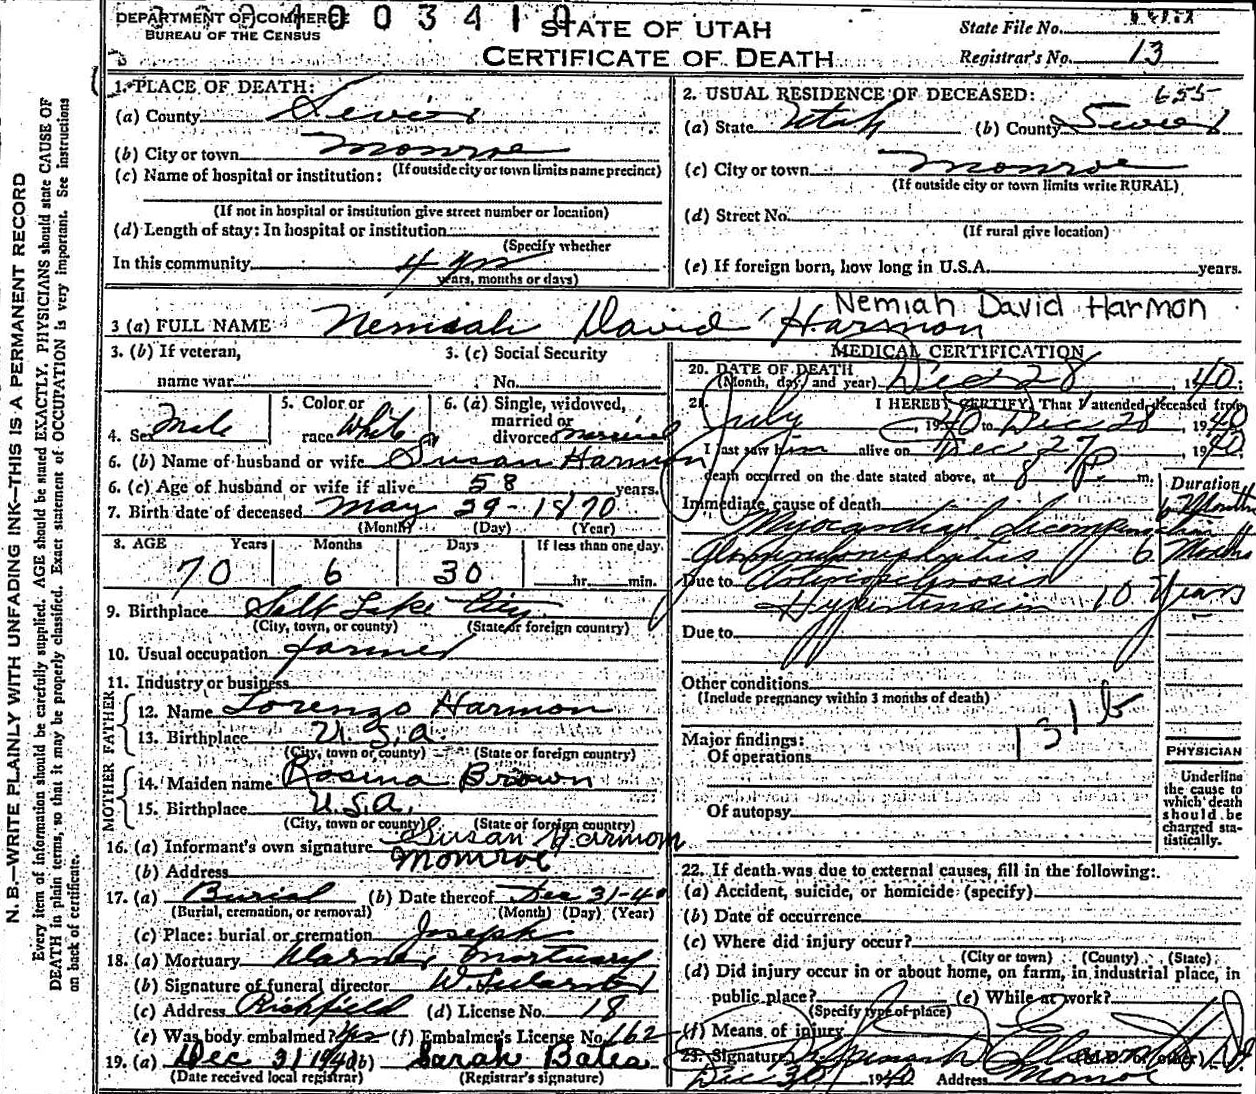 DEPARTMENT OF COMMERCE
BUREAU OF THE CENSUS
0 0 3 4 1 0
STATE OF UTAH
CERTIFICATE OF DEATH
State File No.
Registrar's No. 13
N.B.—WRITE PLAINLY WITH UNFADING INK—THIS IS A PERMANENT RECORD
Every item of information should be carefully supplied. AGE should be stated EXACTLY. PHYSICIANS should state CAUSE OF
DEATH in plain terms, so that it may be properly classified. Exact statement of OCCUPATION is very important. See instructions
on back of certificate.
1. PLACE OF DEATH:
(a) County Sevier
(b) City or town Monroe
(If outside city or town limits name precinct)
(c) Name of hospital or institution:
(If not in hospital or institution give street number or location)
(d) Length of stay: In hospital or institution
(Specify whether
In this community 4 yrs
years, months or days)
2. USUAL RESIDENCE OF DECEASED: 655
(a) State Utah (b) County Sevier
(c) City or town Monroe
(If outside city or town limits write RURAL)
(d) Street No.
(If rural give location)
(e) If foreign born, how long in U.S.A. years.
Nemiah David Harmon
3 (a) FULL NAME Nemiah David Harmon
3. (b) If veteran,
name war
3. (c) Social Security
No.
4. Sex Male
5. Color or
race White
6. (a) Single, widowed,
married or
divorced married
6. (b) Name of husband or wife Susan Harmon
6. (c) Age of husband or wife if alive 58 years.
7. Birth date of deceased May 29-1870
(Month) (Day) (Year)
8. AGE Years Months Days If less than one day.
70 6 30 hr. min.
9. Birthplace Salt Lake City
(City, town, or county) (State or foreign country)
10. Usual occupation farmer
11. Industry or business
FATHER
12. Name Lorenzo Harmon
13. Birthplace U.S.A.
(City, town or county) (State or foreign country)
MOTHER
14. Maiden name Rosina Brown
15. Birthplace U.S.A.
(City, town or county) (State or foreign country)
16. (a) Informant's own signature Susan Harmon
(b) Address Monroe
17. (a) Burial (b) Date thereof Dec 31-40
(Burial, cremation, or removal) (Month) (Day) (Year)
(c) Place: burial or cremation Joseph
18. (a) Mortuary Mortuary
(b) Signature of funeral director
(c) Address Richfield (d) License No. 18
(e) Was body embalmed? Yes (f) Embalmer's License No. 162
19. (a) Dec 31 1940 (b) Sarah Bates
(Date received local registrar) (Registrar's signature)
MEDICAL CERTIFICATION
20. DATE OF DEATH
(Month, day, and year) Dec 28, 1940
21. I HEREBY CERTIFY, That I attended deceased from
July, 1940 to Dec 28 1940
I last saw him alive on Dec 27, 1940
death occurred on the date stated above, at 8 p. m.
Duration
Immediate cause of death 6 Months
Myocardial decompensation
Glomerulonephritis 6 Months
Due to Arteriosclerosis
Hypertension 10 Years
Due to
Other conditions
(Include pregnancy within 3 months of death)
131b
Major findings:
Of operations
Of autopsy
PHYSICIAN
Underline
the cause to
which death
should be
charged sta-
tistically.
22. If death was due to external causes, fill in the following:
(a) Accident, suicide, or homicide (specify)
(b) Date of occurrence
(c) Where did injury occur?
(City or town) (County) (State)
(d) Did injury occur in or about home, on farm, in industrial place, in
public place? (e) While at work?
(Specify type of place)
(f) Means of injury
23. Signature (M.D. or other)
Dec 30 1940 Address Monroe